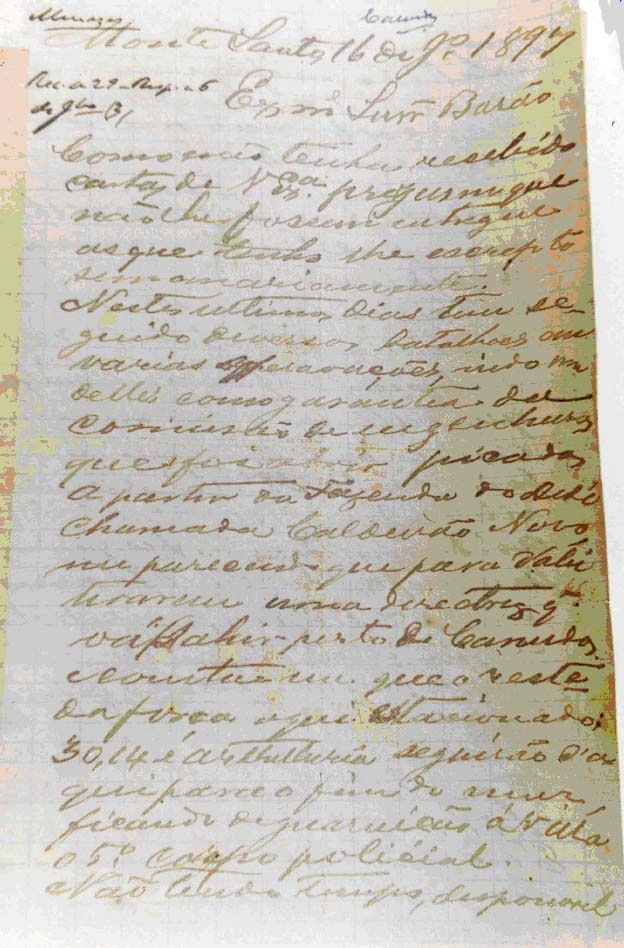 Menezes
Canudos
Monte Santo, 16 de Jo. 1897
Exmº Snr Barão
Como não tenha recebido
cartas de V. Excia. presumo que
não lhe foram entregue
as que tenho lhe escripto
semanariamente.
Nestes ultimos dias tem se-
guido diversos batalhões em
varias operações, indo um
delles como garantia da
comissão de engenheiros
que foi abrir picadas
a partir da Fazenda do
chamada Caldeirão Novo
me parecendo que para dahi
tirarem uma directriz q.
vá sahir perto de Canudos.
que o reste
da força aqui estacionado,
30, 14 e arthelharia seguirão d'a
qui para o fim do mez,
ficando de guarnição á Villa
o 5º corpo policial.
Não tendo tempo disponivel